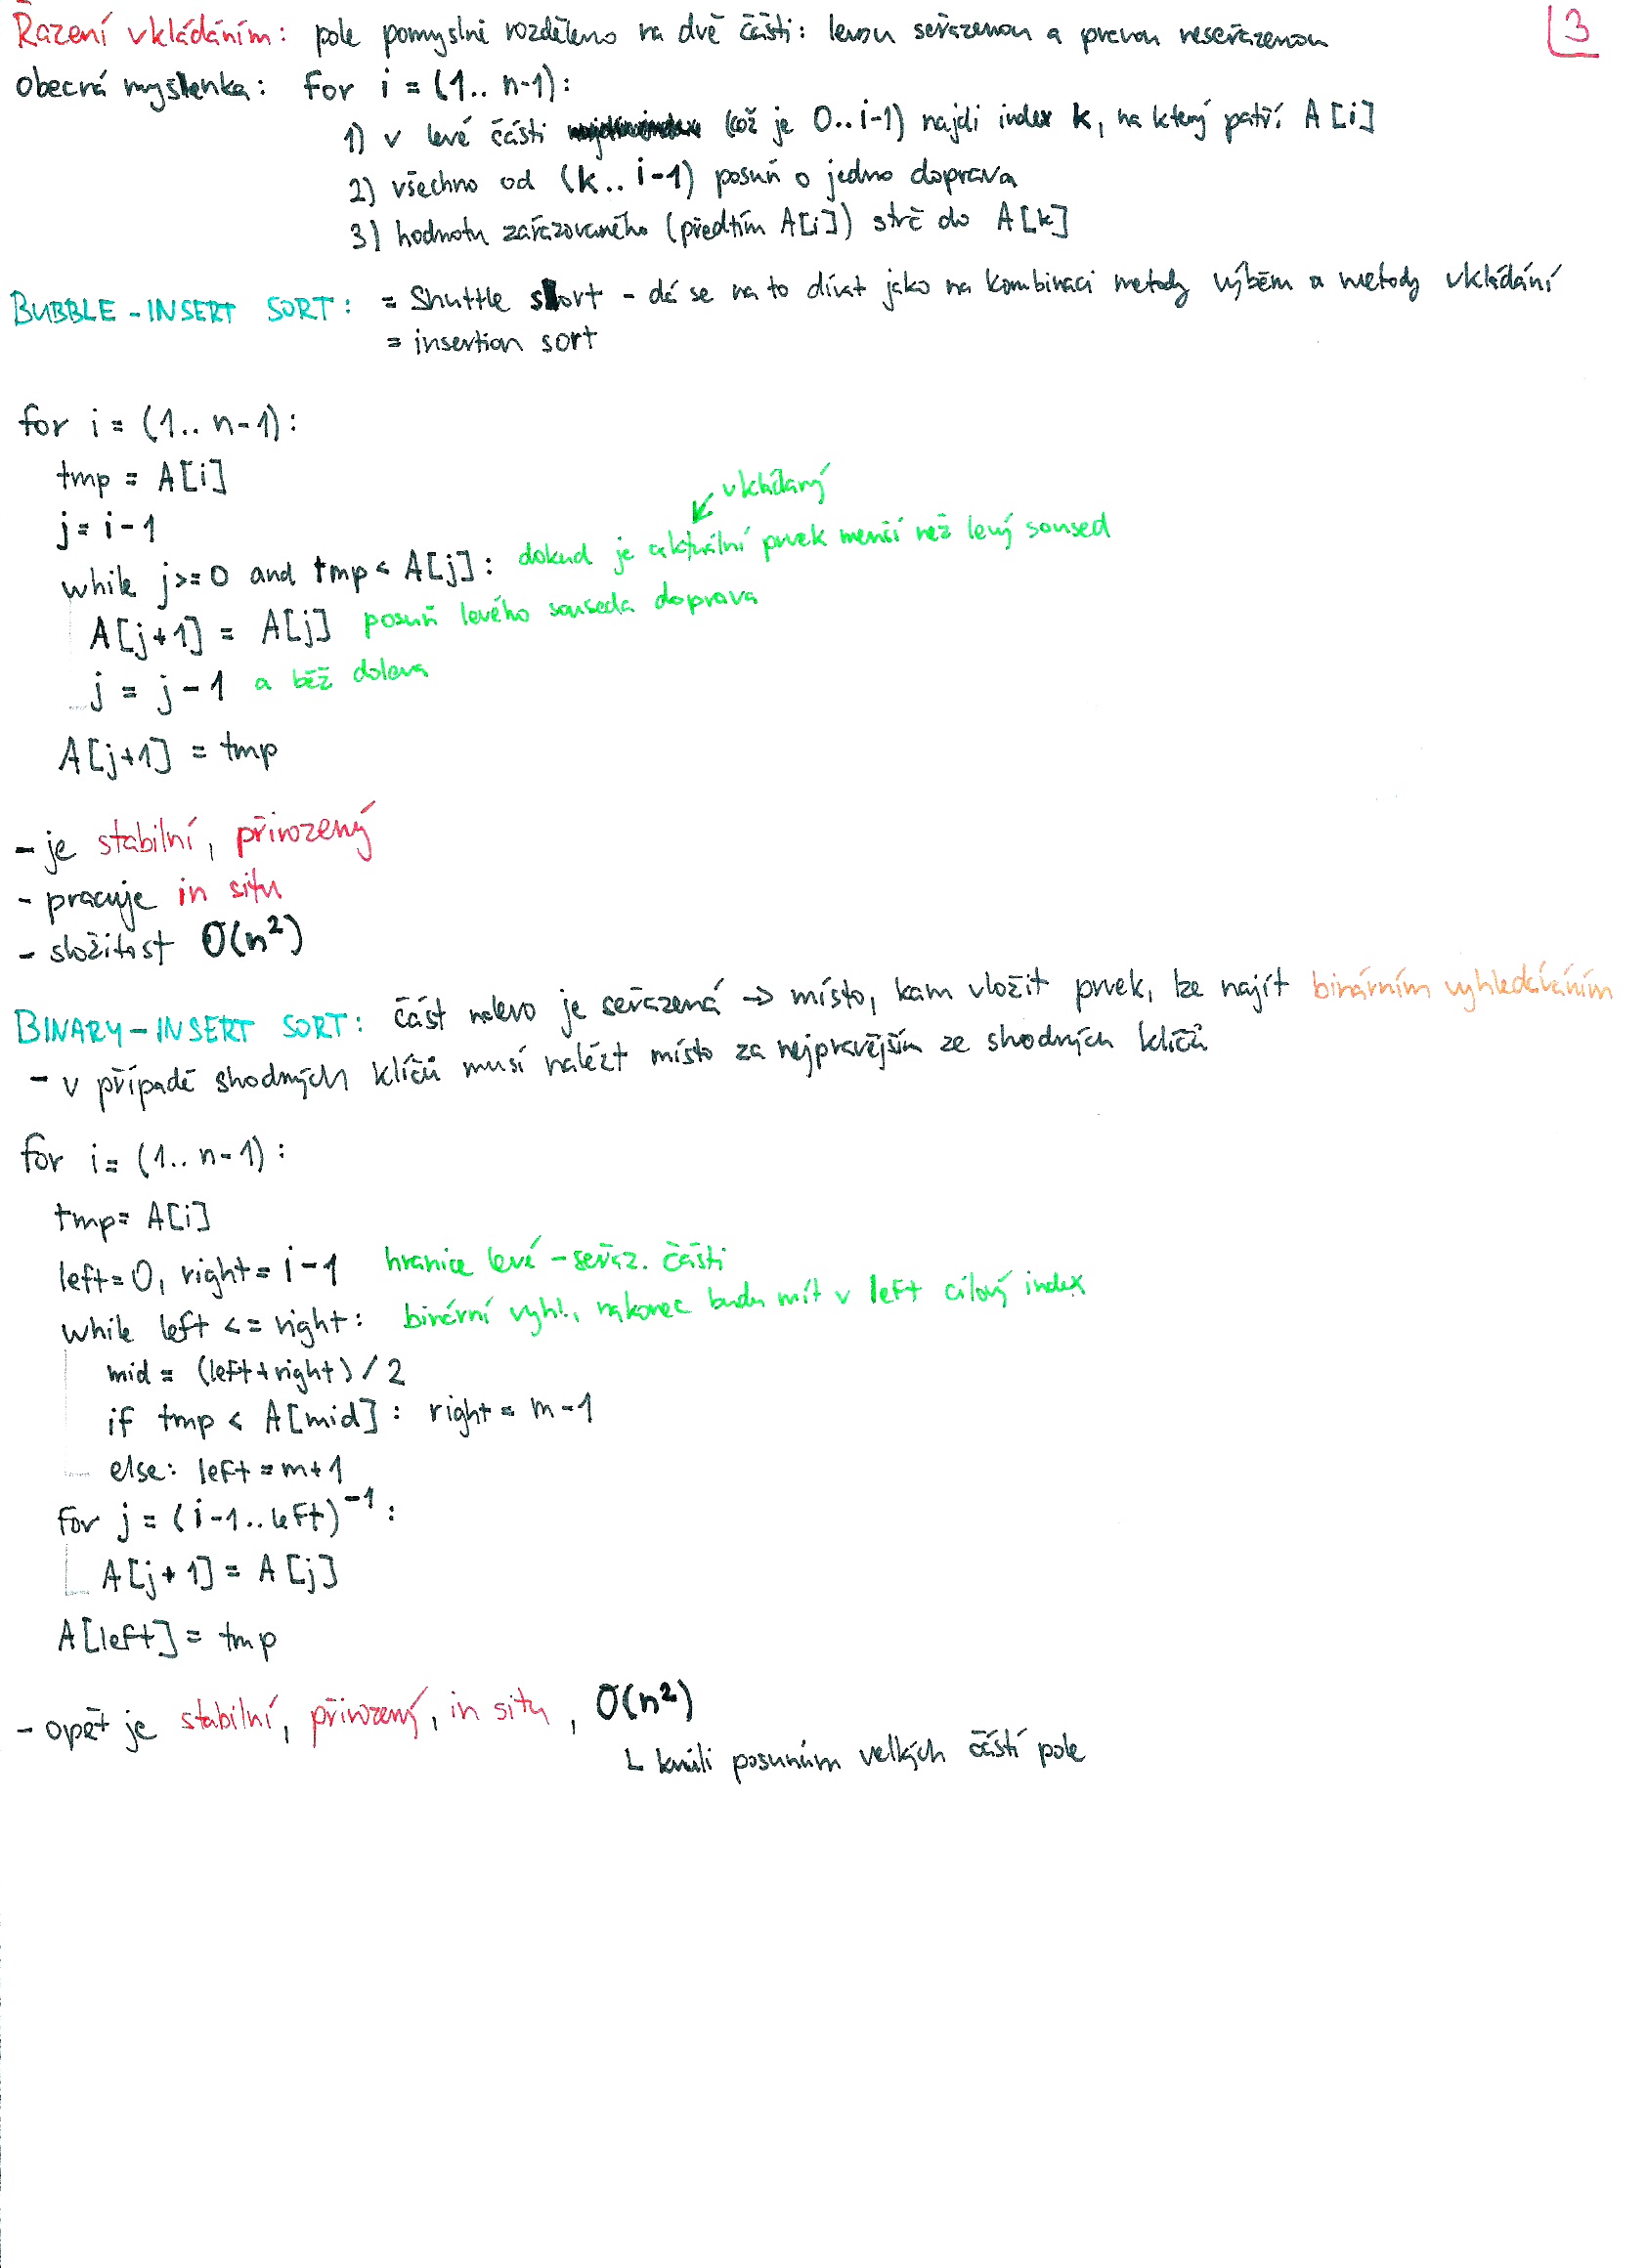 Řazení vkládáním: pole pomyslně rozděleno na dvě části: levou seřazenou a pravou neseřazenou
3
obecná myšlenka: for i = (1.. n-1):
1) v levé části (což je 0..i-1) najdi index k, na který patří A[i]
2) všechno od (k.. i-1) posuň o jedno doprava
3) hodnotu zařazovaného (předtím A[i]) strč do A[k]
BUBBLE-INSERT SORT: = Shuttle sort - dá se na to dívat jako na kombinaci metody výběru a metody vkládání
= insertion sort
for i = (1.. n-1):
tmp = A[i]
vkládaný
j = i-1
while j>=0 and tmp < A[j]: dokud je aktuální prvek menší než levý soused
A[j+1] = A[j] posuň levého souseda doprava
j = j-1 a běž doleva
A[j+1] = tmp
- je stabilní, přirozený
- pracuje in situ
- složitost O(n²)
BINARY-INSERT SORT: část nalevo je seřazená → místo, kam vložit prvek, lze najít binárním vyhledáváním
- v případě shodných klíčů musí nalézt místo za nejpravějším ze shodných klíčů
for i = (1.. n-1):
tmp = A[i]
left=0, right = i-1 hranice levé - seřaz. části
while left <= right: binární vyhl., nakonec budu mít v left cílový index
mid = (left+right) / 2
if tmp < A[mid]: right = m-1
else: left = m+1
for j = (i-1..left)⁻¹:
A[j+1] = A[j]
A[left] = tmp
- opět je stabilní, přirozený, in situ, O(n²)
└ kvůli posunům velkých částí pole